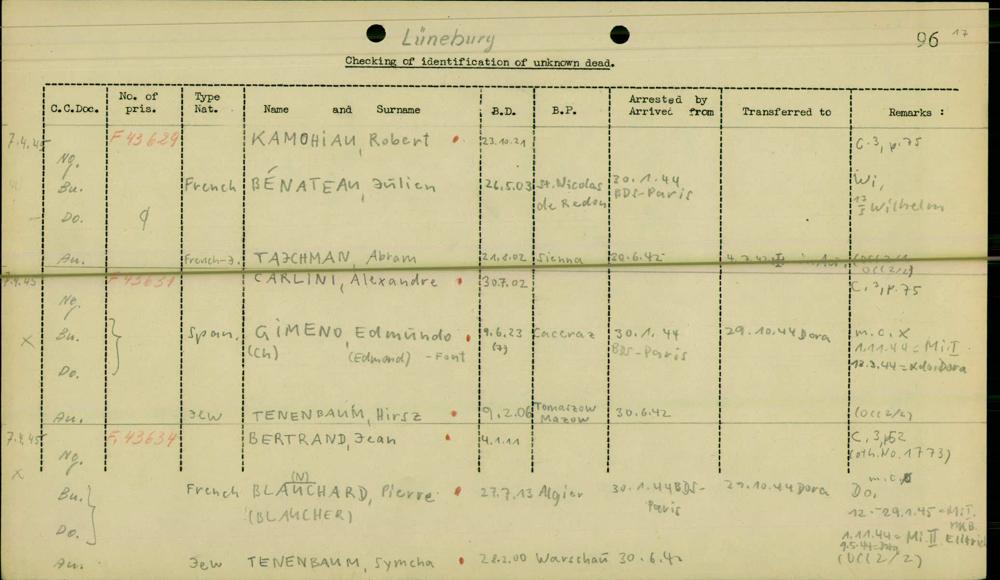 Lüneburg 96 17
Checking of identification of unknown dead.
C.C.Doc. No. of pris. Type Nat. Name and Surname B.D. B.P. Arrested by Arrived from Transferred to Remarks :
7.4.45 F 43629 KAMOHIAU, Robert 23.10.21 C.3, p.75
Ng.
Bu. French BÉNATEAU, Julien 26.5.03 St. Nicolas de Redon 30.1.44 BDS-Paris Wi, Wilhelm
Do.
Au. French-J. TAJCHMAN, Abram 21.8.02 Sienna 20.6.42
7.4.45 F 43631 CARLINI, Alexandre 30.7.02 C.3, p.75
Ng.
X Bu. Span. GIMENO, Edmundo 9.6.23 Caceraz 30.1.44 29.10.44 Dora m.c. X
(Ch) (Edmond) - Font (7) BDS-Paris 1.11.44 = Mi.I
Do.
Au. Jew TENENBAUM, Hirsz 9.2.06 Tomaszow Mazow 30.6.42 (Occ2/2)
7.4.45 F 43634 BERTRAND, Jean 4.1.11 C.3, p.52
Ng. (oth. No. 1773)
X (N) m.c.
Bu. French BLANCHARD, Pierre 27.7.13 Algier 30.1.44 BDS-Paris 29.10.44 Dora Do,
(BLAUCHER) 12.-29.1.45 = Mi I.
Do. 1.11.44 = Mi. II Ellrich
Au. Jew TENENBAUM, Symcha 28.2.00 Warschau 30.6.42 (Occ2/2)